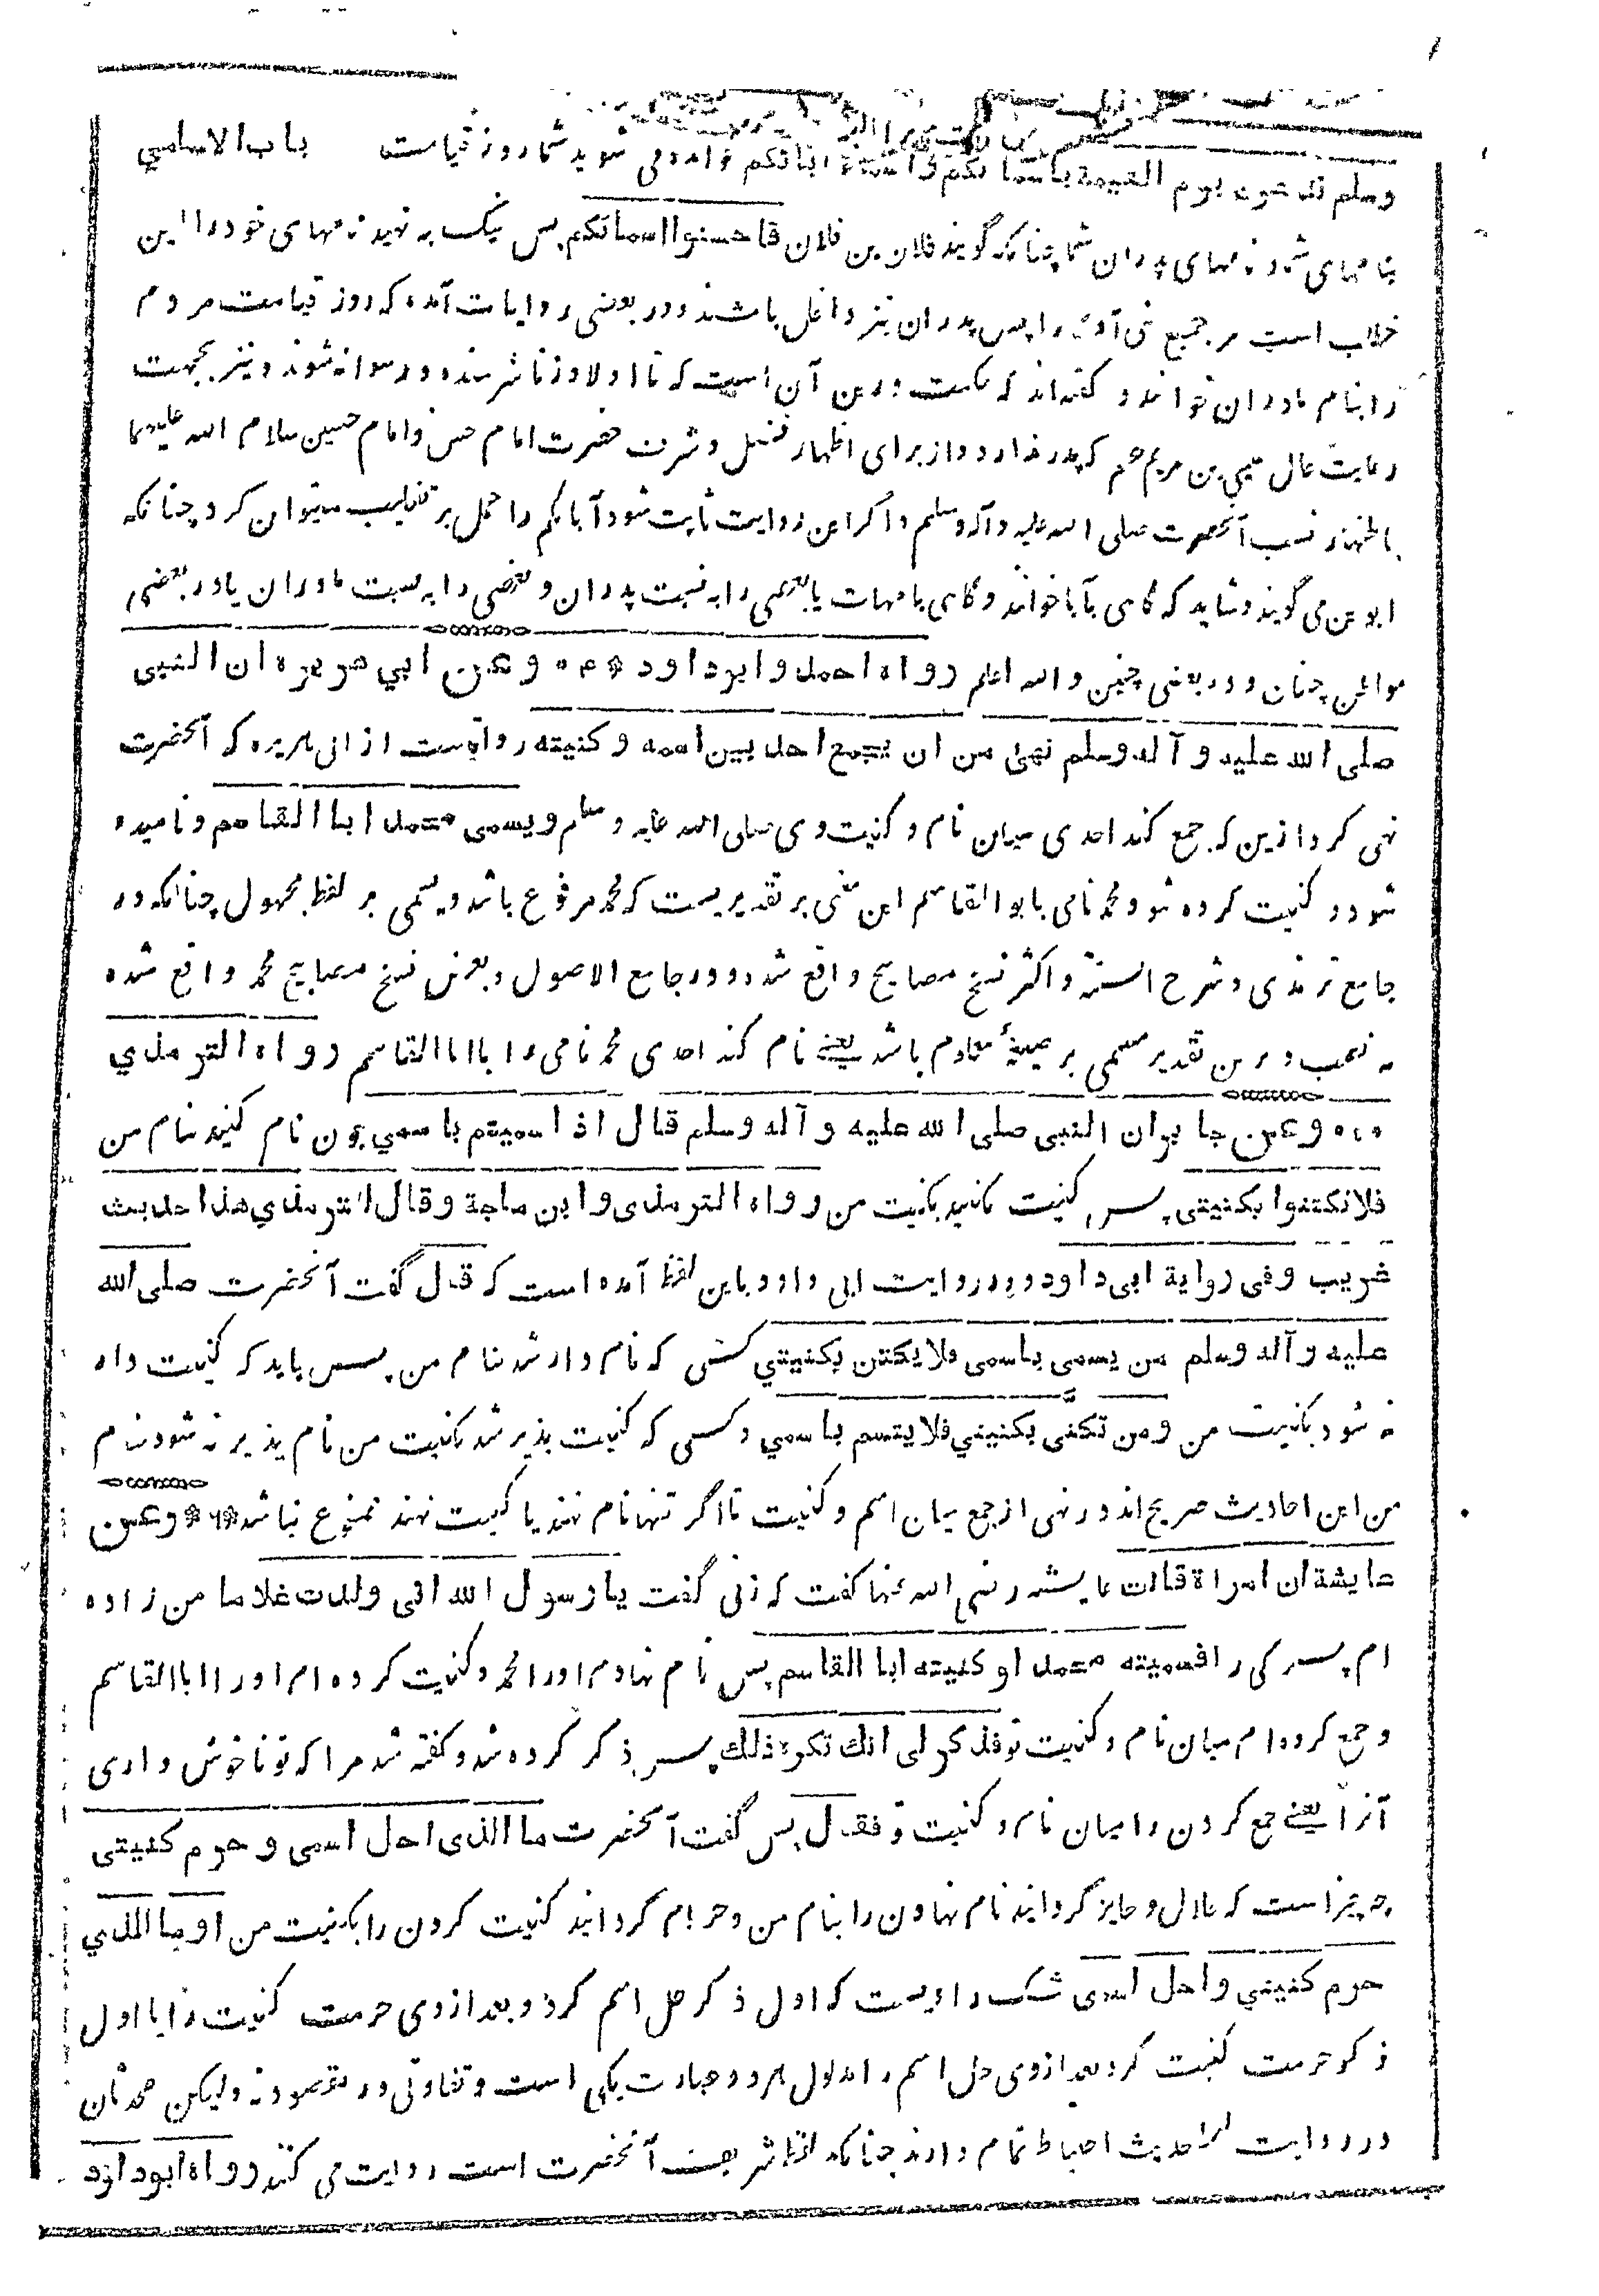 باب الاسامي
وسلم تدعون يوم القيمة باسمائكم واسماء ابائكم خوانده می شوید شما روز قیامت
بنامهای شما و نامهای پدران شما چنانکه گویند فلان بن فلان فاحسنوا اسمائكم پس نیک بنهید نامهای خود را این
خطاب است مر جمیع بنی آدم را پس پدران نیز داخل باشند و در بعضی روایات آمده که روز قیامت مردم
را بنام مادران خوانند و گفته اند که حکمت درین آن است که تا اولاد زنا شرمنده و رسوا نشوند و نیز بجهت
رعایت حال عیسی بن مریم که پدر ندارد و از برای اظهار فضل و شرف حضرت امام حسن و امام حسین سلام الله علیهما
باظهار نسب آنحضرت صلی الله علیه وآله وسلم و اگر این روایت ثابت شود آبائکم را حمل بر تغلیب میتوان کرد چنانکه
ابوین می گویند و شاید که گاهی بآبا خوانند و گاهی بامهات یا بعضی را به نسبت پدران و بعضی را به نسبت مادران یا در بعضی
مواطن چنان و در بعضی چنین والله اعلم رواه احمد وابوداود وعن ابي هريرة ان النبى
صلى الله عليه وآله وسلم نهى من ان يجمع احد بين اسمه وكنيته روایت است از ابی هریره که آنحضرت
نهی کرد ازین که جمع کند احدی میان نام و کنیت وی صلی الله علیه وسلم ويسمى محمد ابا القاسم و نامیده
شود و کنیت کرده شود محمد نامی بابو القاسم این معنی بر تقدیریست که محمد مرفوع باشد و یسمی بر لفظ مجهول چنانکه در
جامع ترمذی و شرح السنة و اکثر نسخ مصابیح واقع شده و در جامع الاصول و بعض نسخ مصابیح محمد واقع شده
به نصب و برین تقدیر یسمی بر صیغهٔ معلوم باشد یعنے نام کند احدی محمد نامی را بابا القاسم رواه الترمذي
وعن جابر ان النبى صلى الله عليه وآله وسلم قال اذا سميتم باسمي چون نام کنید بنام من
فلا تكتنوا بكنيتى پس کنیت مکنید بکنیت من رواه الترمذى وابن ماجة وقال الترمذي هذا حديث
غريب وفى رواية ابى داود و در روایت ابی داود باین لفظ آمده است که قال گفت آنحضرت صلى الله
عليه وآله وسلم من يسمى باسمى فلا يكتن بكنيتي کسی که نام دار شد بنام من پس باید که کنیت دار
نه شود بکنیت من ومن تكنّى بكنيتي فلا يتسم باسمي و کسی که کنیت پذیر شد بکنیت من نام پذیر نه شود بنام
من این احادیث صریح اند در نهی از جمع میان اسم و کنیت تا اگر تنها نام نهند یا کنیت نهند ممنوع نباشد وعن
عايشة ان امراة قالت عایشه رضی الله عنها گفت که زنی گفت يا رسول الله انى ولدت غلاما من زاده
ام پسرکی را فسميته محمدا وكنيته ابا القاسم پس نام نهادم او را محمد و کنیت کرده ام او را ابا القاسم
و جمع کرده ام میان نام و کنیت تو فذكر لى انك تكره ذلك پس ذکر کرده شد و گفته شد مرا که تو ناخوش داری
آنرا یعنے جمع کردن را میان نام و کنیت تو فقال پس گفت آنحضرت ما الذى احل اسمى وحرم كنيتى
چه چیز است که حلال و جایز گردانید نام نهادن را بنام من و حرام گردانید کنیت کردن را بکنیت من او ما الذي
حرم كنيتي واحل اسمى شک راویست که اول ذکر حل اسم کرد و بعد ازوی حرمت کنیت را یا اول
ذکر حرمت کنیت کرد بعد ازوی حل اسم را مدلول هر دو عبارت یکی است و تفاوتی در مقصود نه ولیکن محدثان
در روایت حدیث احتیاط تمام دارند چنانکه لفظ شریف آنحضرت است روایت می کنند رواه ابوداود